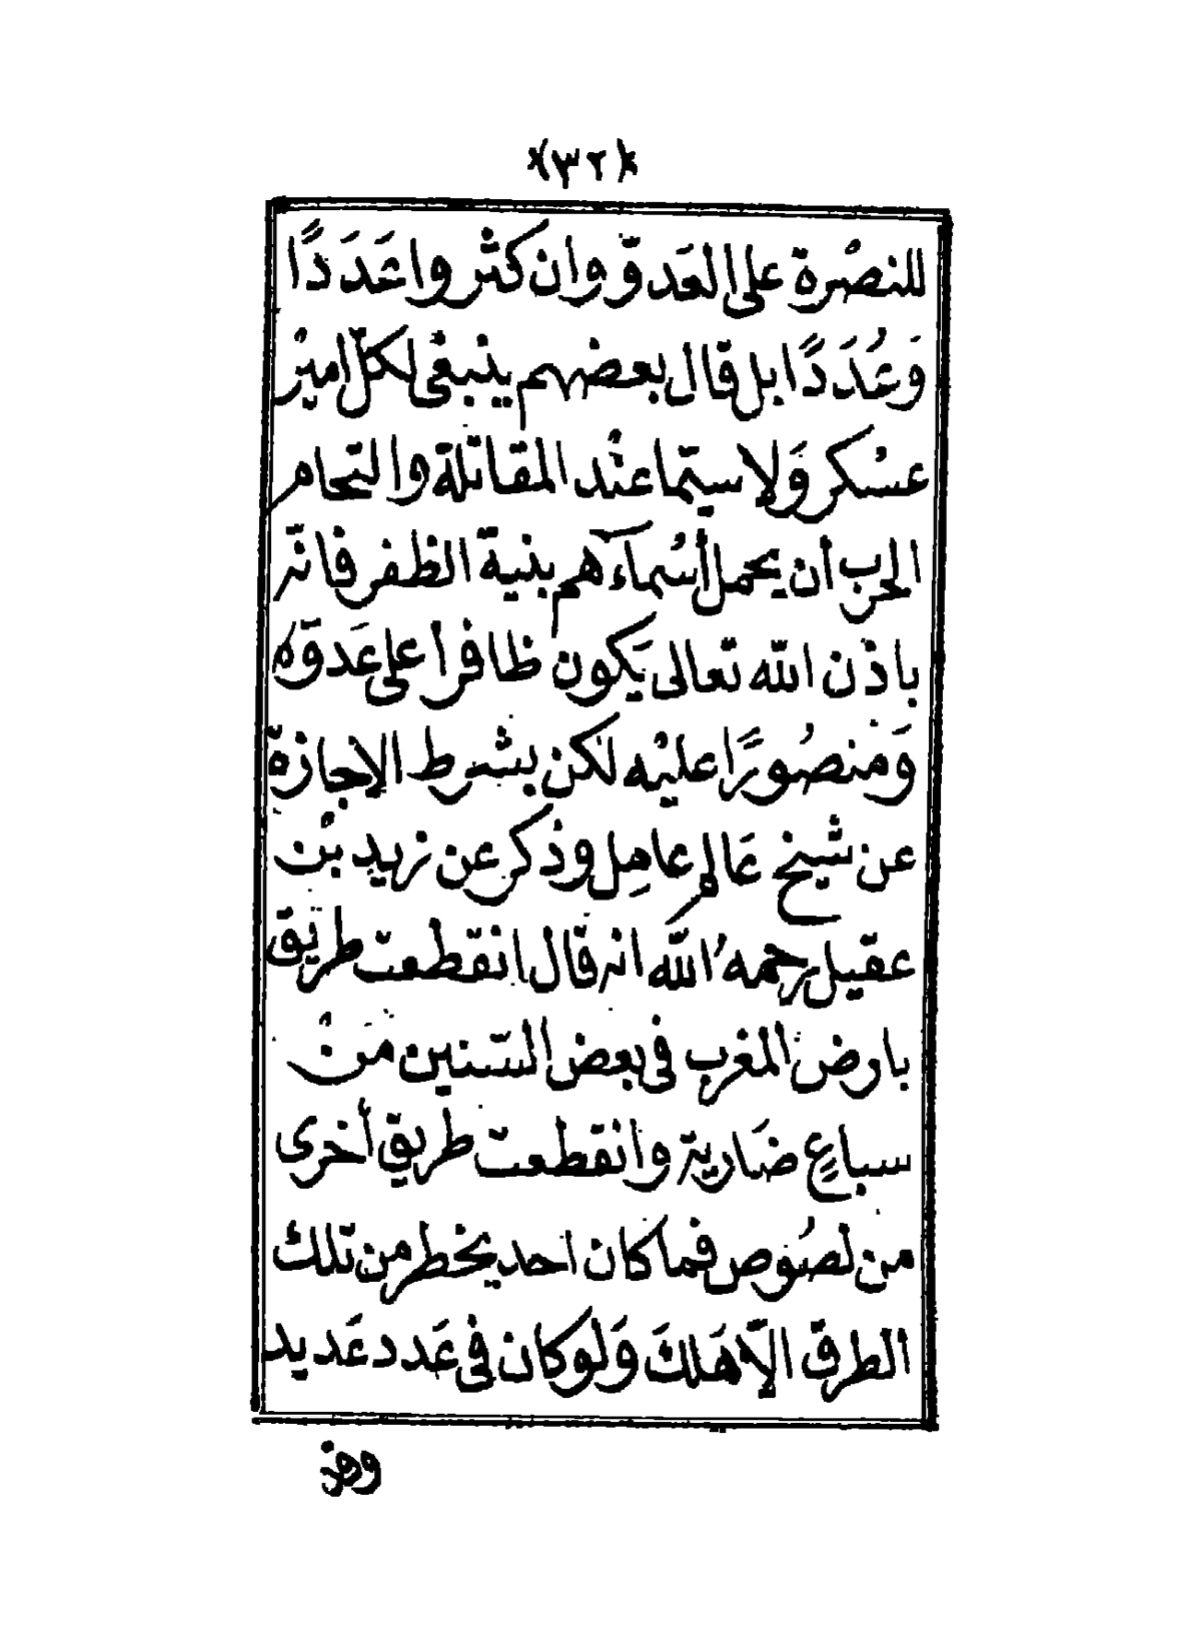 (٣٢)
للنصْرة على العَدوّ وان كثْرواعَدَدًا
وَعُدَدًا بل قال بعضهم ينبغى لكلّ اميْر
عسْكر وَلا سيّما عنْد المقاتلة والتحام
الحرب أن يحمل أسْماءَهم بنية الظفر فانّه
باذن الله تعالى يَكون ظافرا على عَدوّه
وَمنصُورًا عليْه لكن بشرط الإجازة
عن شيخ عَالم عامِل وذكر عن زيدِ بْن
عقيل رحمهُ الله انه قال انقطعت طريق
بارض المغرب فى بعض السّنين منْ
سباعٍ ضَارية وانقطعت طريق أخرى
من لصُوص فما كان احد يخطر من تلك
الطرق الّا هَلكَ وَلو كان فى عَدد عَديد
وفد